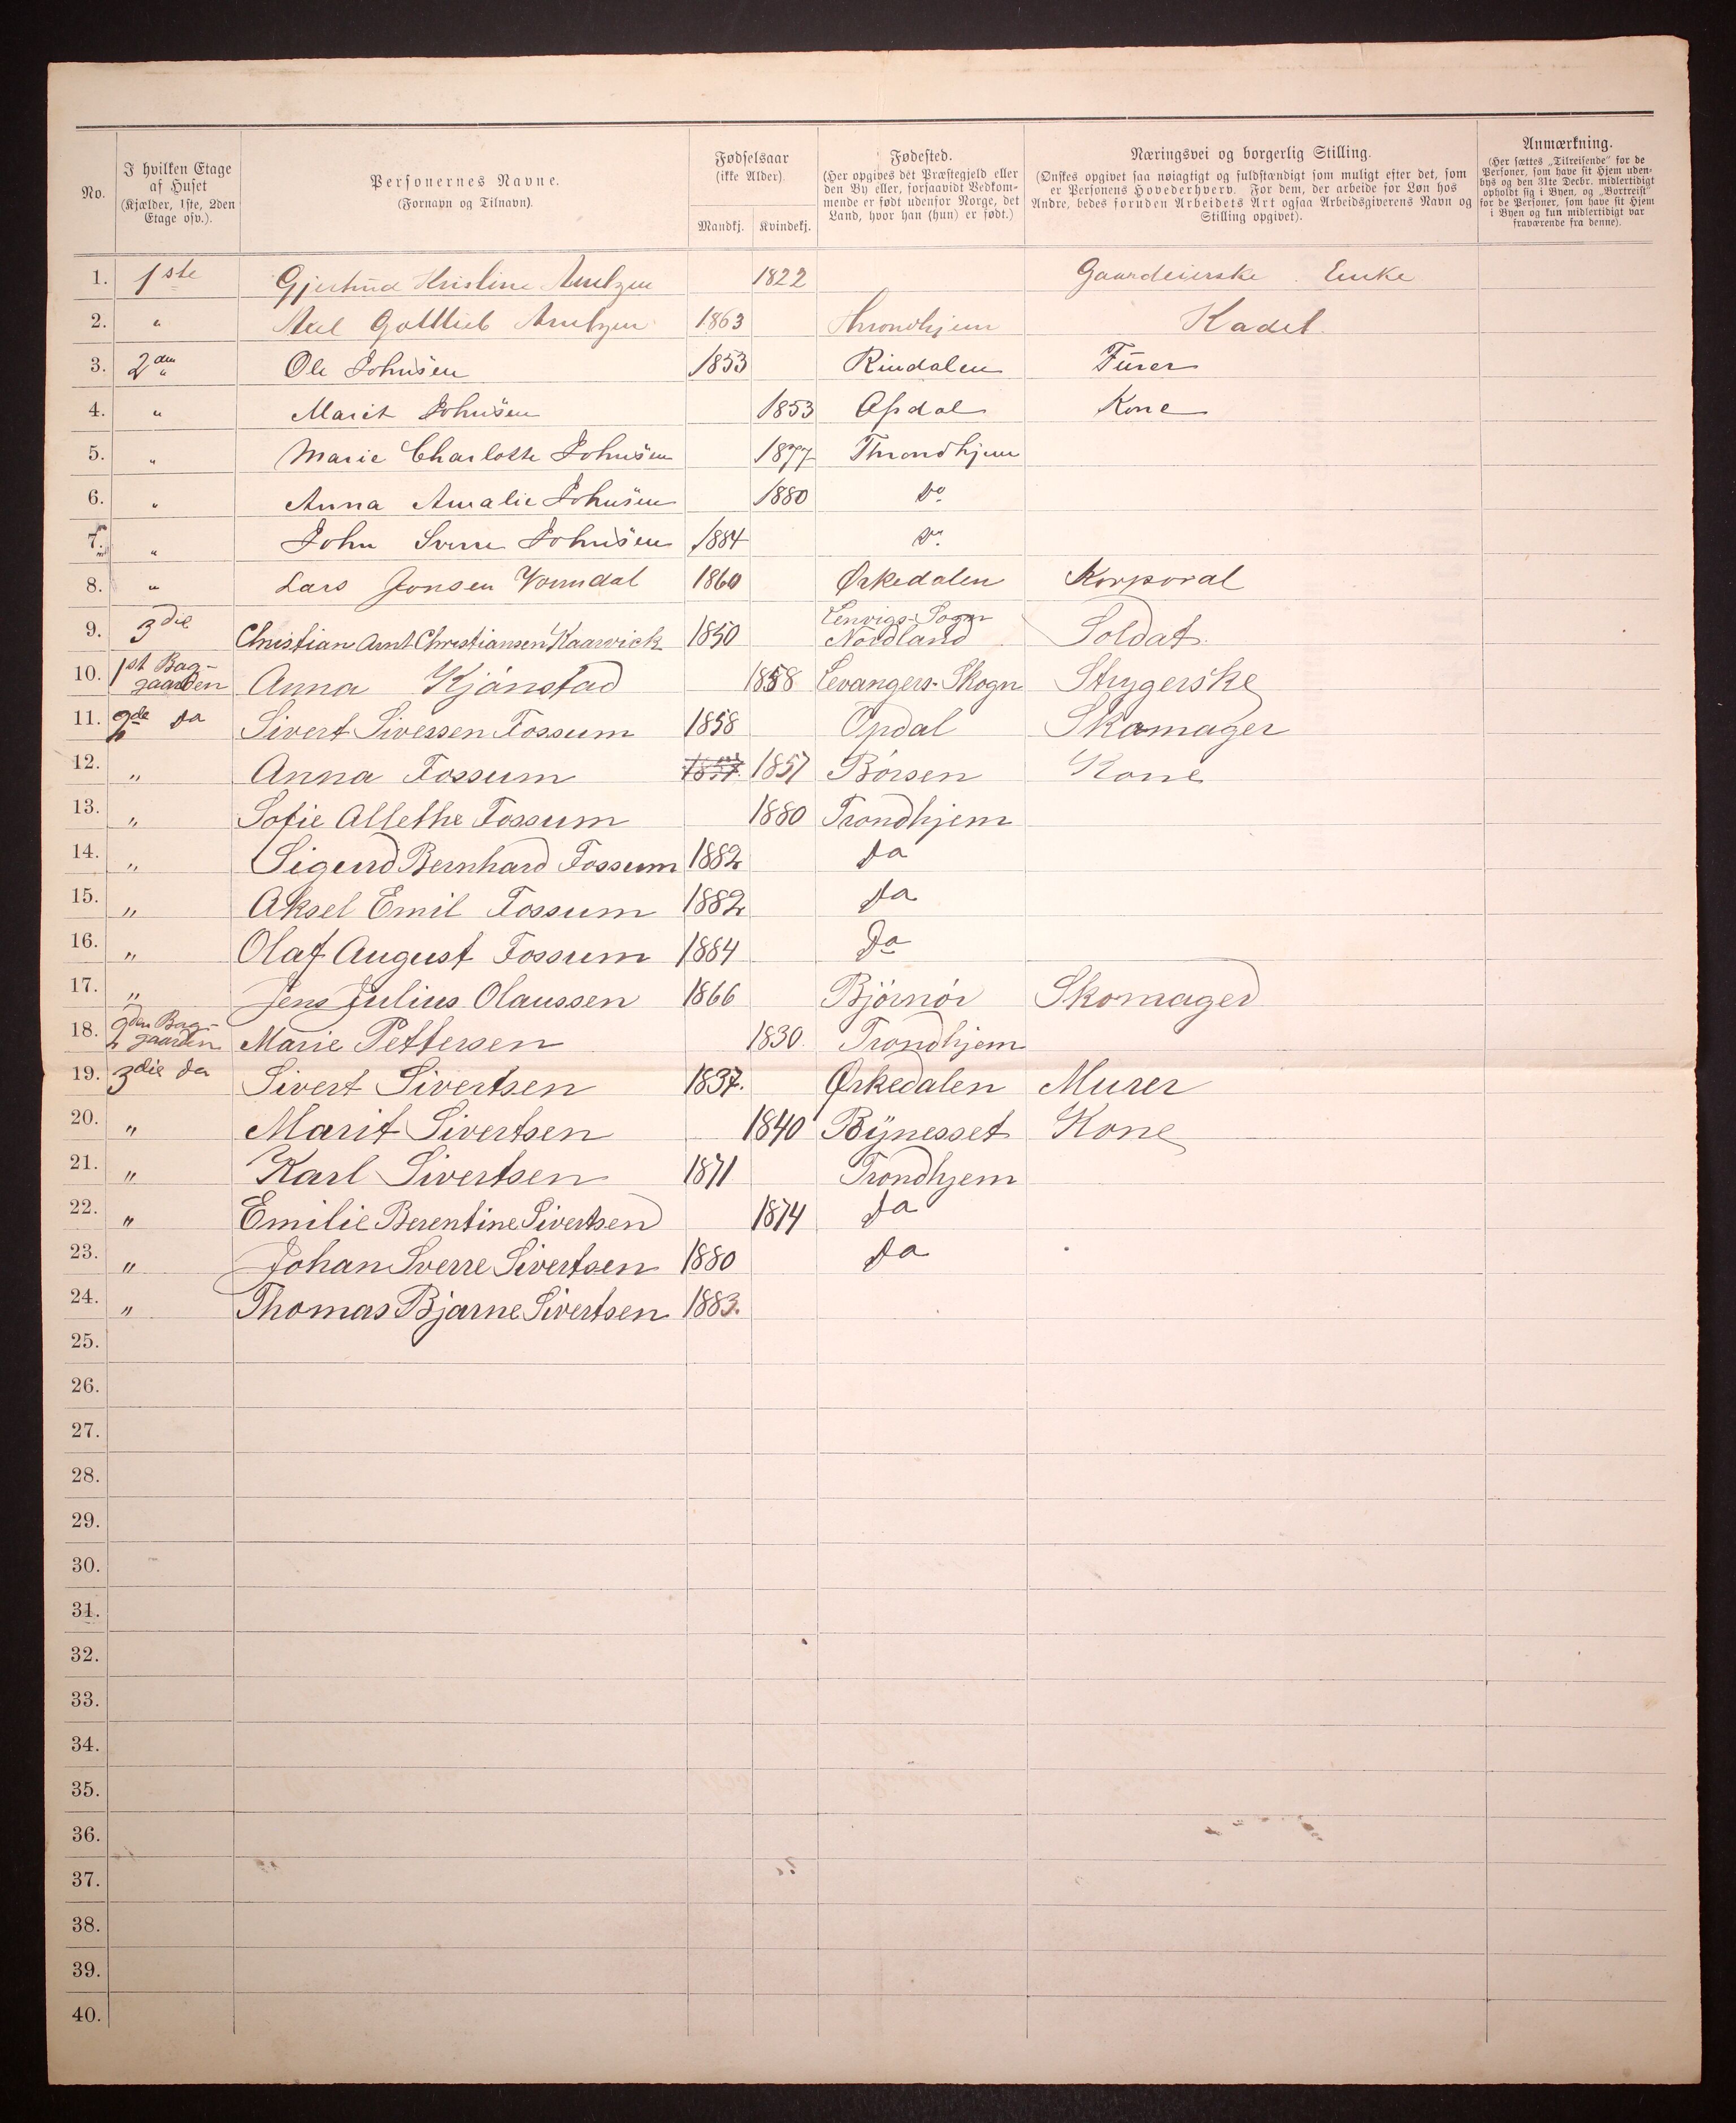 No.
I hvilken Etage
af Huset
(Kjælder, 1ste, 2den
Etage osv.).
Personernes Navne.
(Fornavn og Tilnavn).
Fødselsaar
(ikke Alder).
Mandkj. Kvindekj.
Fødested.
(Her opgives det Præstegjeld eller
den By eller, forsaavidt Vedkom-
mende er født udenfor Norge, det
Land, hvor han (hun) er født.)
Næringsvei og borgerlig Stilling.
(Ønskes opgivet saa nøiagtigt og fuldstændigt som muligt efter det, som
er Personens Hovederhverv. For dem, der arbeide for Løn hos
Andre, bedes foruden Arbeidets Art ogsaa Arbeidsgiverens Navn og
Stilling opgivet).
Anmærkning.
(Her sættes „Tilreisende" for de
Personer, som have sit Hjem uden-
bys og den 31te Decbr. midlertidigt
opholdt sig i Byen, og „Bortreist"
for de Personer, som have sit Hjem
i Byen og kun midlertidigt var
fraværende fra denne).
1. 1ste Gjertrud Kristine Arntzen 1822 Gaardeierske Enke
2. " Axel Gottlieb Arntzen 1863 Throndhjem Kadet
3. 2den " Ole Johnsen 1853 Rindalen Furer
4. " Marit Johnsen 1853 Opdal Kone
5. " Marie Charlotte Johnsen 1877 Throndhjem
6. " Anna Amalie Johnsen 1880 Do
7. " John Sverre Johnsen 1884 Do
8. " Lars Jonsen Vormdal 1860 Ørkedalen Korporal
9. 3die Christian Arnt Christiansen Kaarvick 1850 Lenvigs-Sogn Nordland Soldat.
10. 1st Bag-gaarden Anna Kjønstad 1858 Levangers-Skogn Strygerske
11. 2de Do Sivert Siverssen Fossum 1858 Opdal Skomager
12. " Anna Fossum 1857. 1857 Børsen Kone
13. " Sofie Allethe Fossum 1880 Trondhjem
14. " Sigurd Bernhard Fossum 1882 Do
15. " Aksel Emil Fossum 1882 Do
16. " Olaf August Fossum 1884 Do
17. " Jens Julius Olaussen 1866 Bjørnør Skomager
18. 2den Bag-gaarden Marie Pettersen 1830. Trondhjem
19. 3die Do Sivert Sivertsen 1837. Ørkedalen Murer
20. " Marit Sivertsen 1840 Bynesset Kone
21. " Karl Sivertsen 1871 Trondhjem
22. " Emilie Berentine Sivertsen 1874 Do
23. " Johan Sverre Sivertsen 1880 Do
24. " Thomas Bjarne Sivertsen 1883.
25.
26.
27.
28.
29.
30.
31.
32.
33.
34.
35.
36.
37.
38.
39.
40.